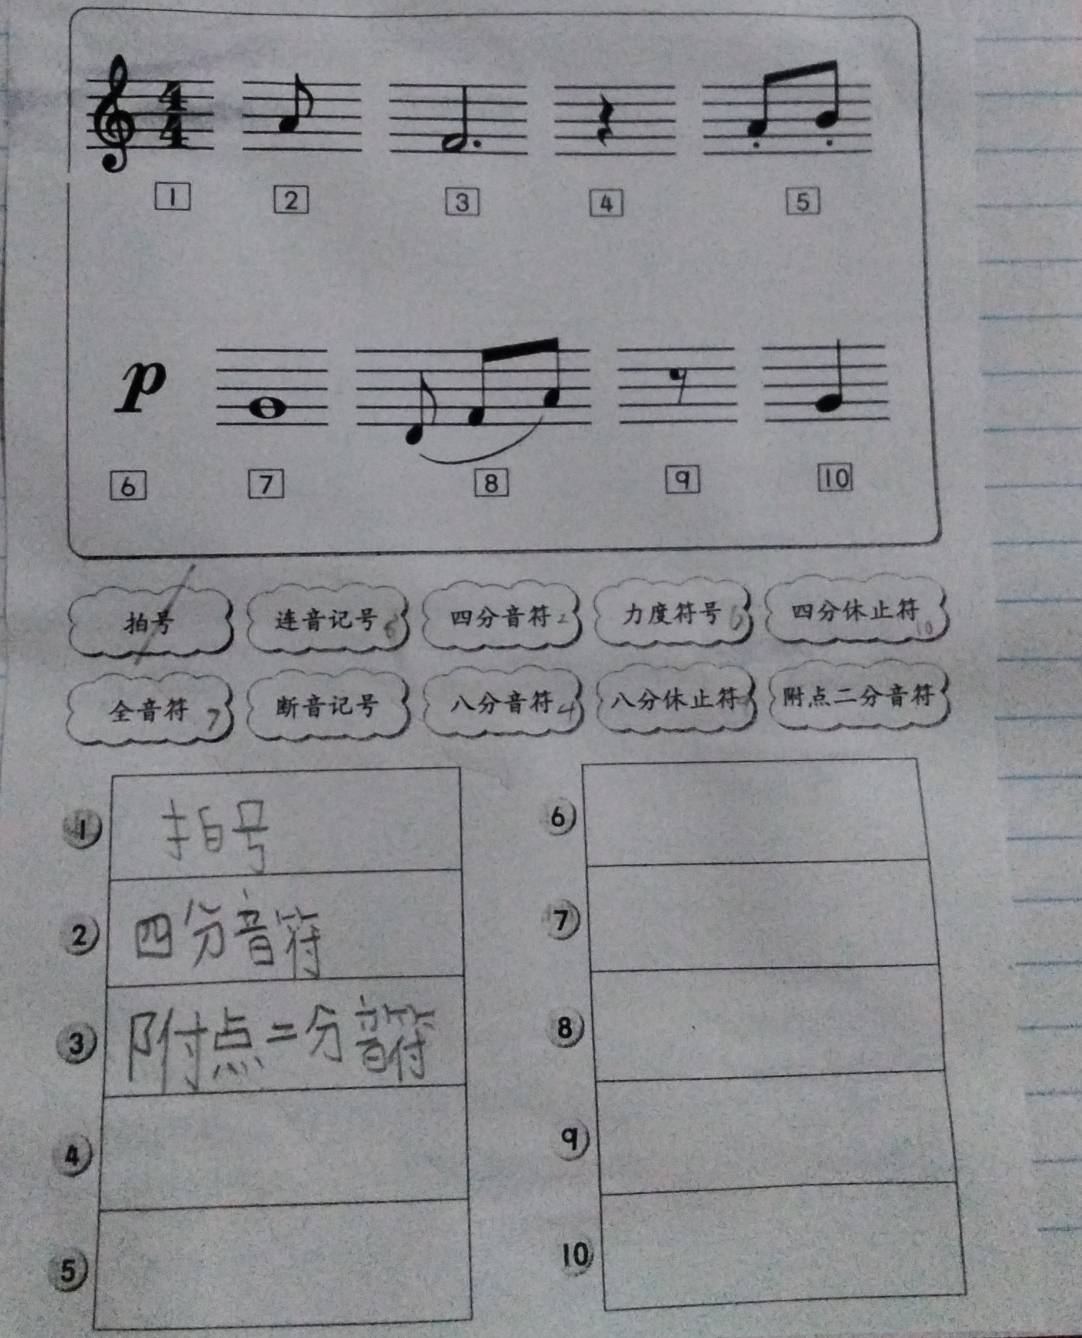 4
4
1 2 3 4 5
p
6 7 8 9 10
拍号 连音记号 四分音符 2 力度符号 四分休止符 10
全音符 7 断音记号 八分音符 4 八分休止符 附点二分音符
1 拍号
2 四分音符
3 附点二分音符
4
5
6
7
8
9
10